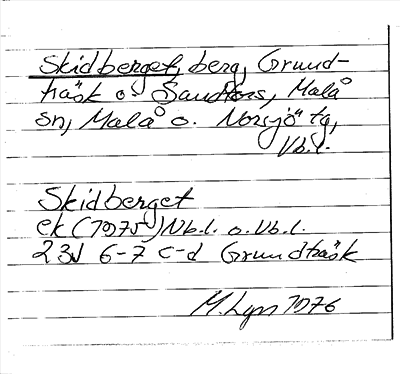 Skidberget, berg, Grund-
träsk o. Sandfors, Malå
sn, Malå o. Norsjö tg,
Vb.l.
Skidberget
ek (1975) Nb.l. o. Vb.l.
23J 6-7 c-d Grundträsk
M. Lgn 1976